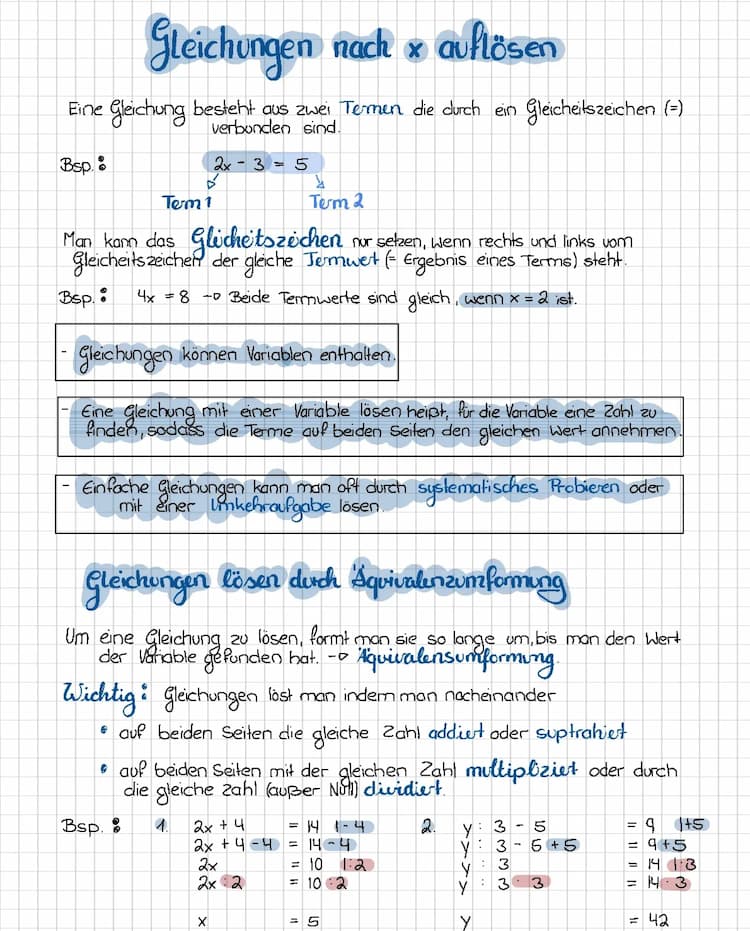 Gleichungen nach x auflösen
Eine Gleichung besteht aus zwei Termen die durch ein Gleicheitszeichen (=)
verbunden sind.
Bsp.: 2x - 3 = 5
Term 1 Term 2
Man kann das Glicheitszeichen nur setzen, wenn rechts und links vom
Gleicheitszeichen der gleiche Termwert (= Ergebnis eines Terms) steht.
Bsp.: 4x = 8 → Beide Termwerte sind gleich, wenn x = 2 ist.
- Gleichungen können Variablen enthalten.
- Eine Gleichung mit einer Variable lösen heißt, für die Variable eine Zahl zu
finden, sodass die Terme auf beiden Seiten den gleichen Wert annehmen.
- Einfache Gleichungen kann man oft durch systematisches Probieren oder
mit einer Umkehraufgabe lösen.
Gleichungen lösen durch Äquivalenzumformung
Um eine Gleichung zu lösen, formt man sie so lange um, bis man den Wert
der Variable gefunden hat. → Äquivalensumformung.
Wichtig: Gleichungen löst man indem man nacheinander
• auf beiden Seiten die gleiche Zahl addiert oder suptrahiert
• auf beiden Seiten mit der gleichen Zahl multipliziert oder durch
die gleiche Zahl (außer Null) dividiert.
Bsp.: 1. 2x + 4 = 14 |-4 2. y : 3 - 5 = 9 |+5
2x + 4 - 4 = 14 - 4 y : 3 - 5 + 5 = 9 + 5
2x = 10 |:2 y : 3 = 14 |·3
2x : 2 = 10 : 2 y : 3 · 3 = 14 · 3
x = 5 y = 42